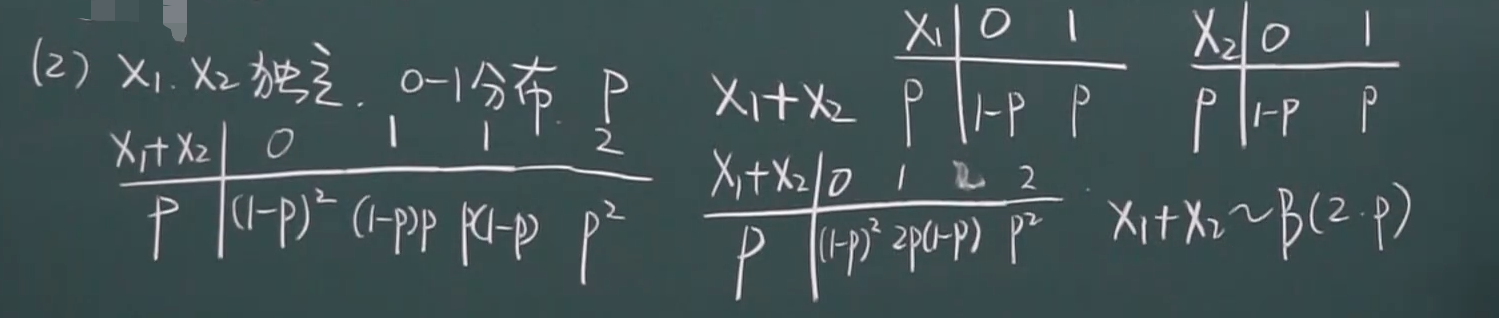 (2) X₁.X₂独立. 0-1分布. P
X₁+X₂
X₁ | 0 1
P | 1-P P
X₂ | 0 1
P | 1-P P
X₁+X₂ | 0 1 1 2
P | (1-P)² (1-P)P P(1-P) P²
X₁+X₂ | 0 1 2
P | (1-P)² 2P(1-P) P²
X₁+X₂~β(2.P)